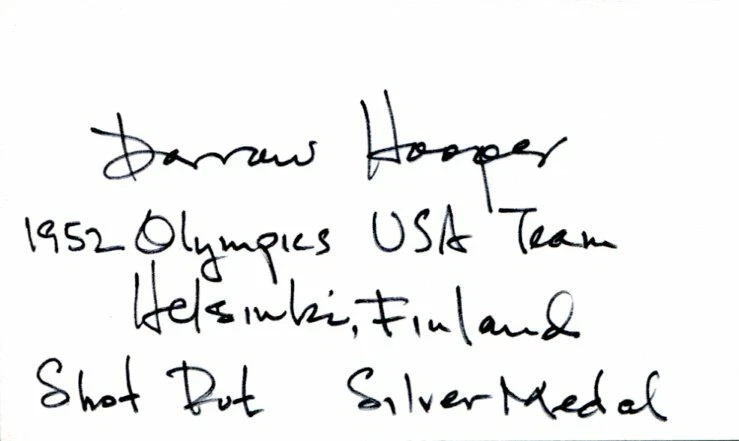 Darrow Hooper
1952 Olympics USA Team
Helsinki, Finland
Shot Put Silver Medal